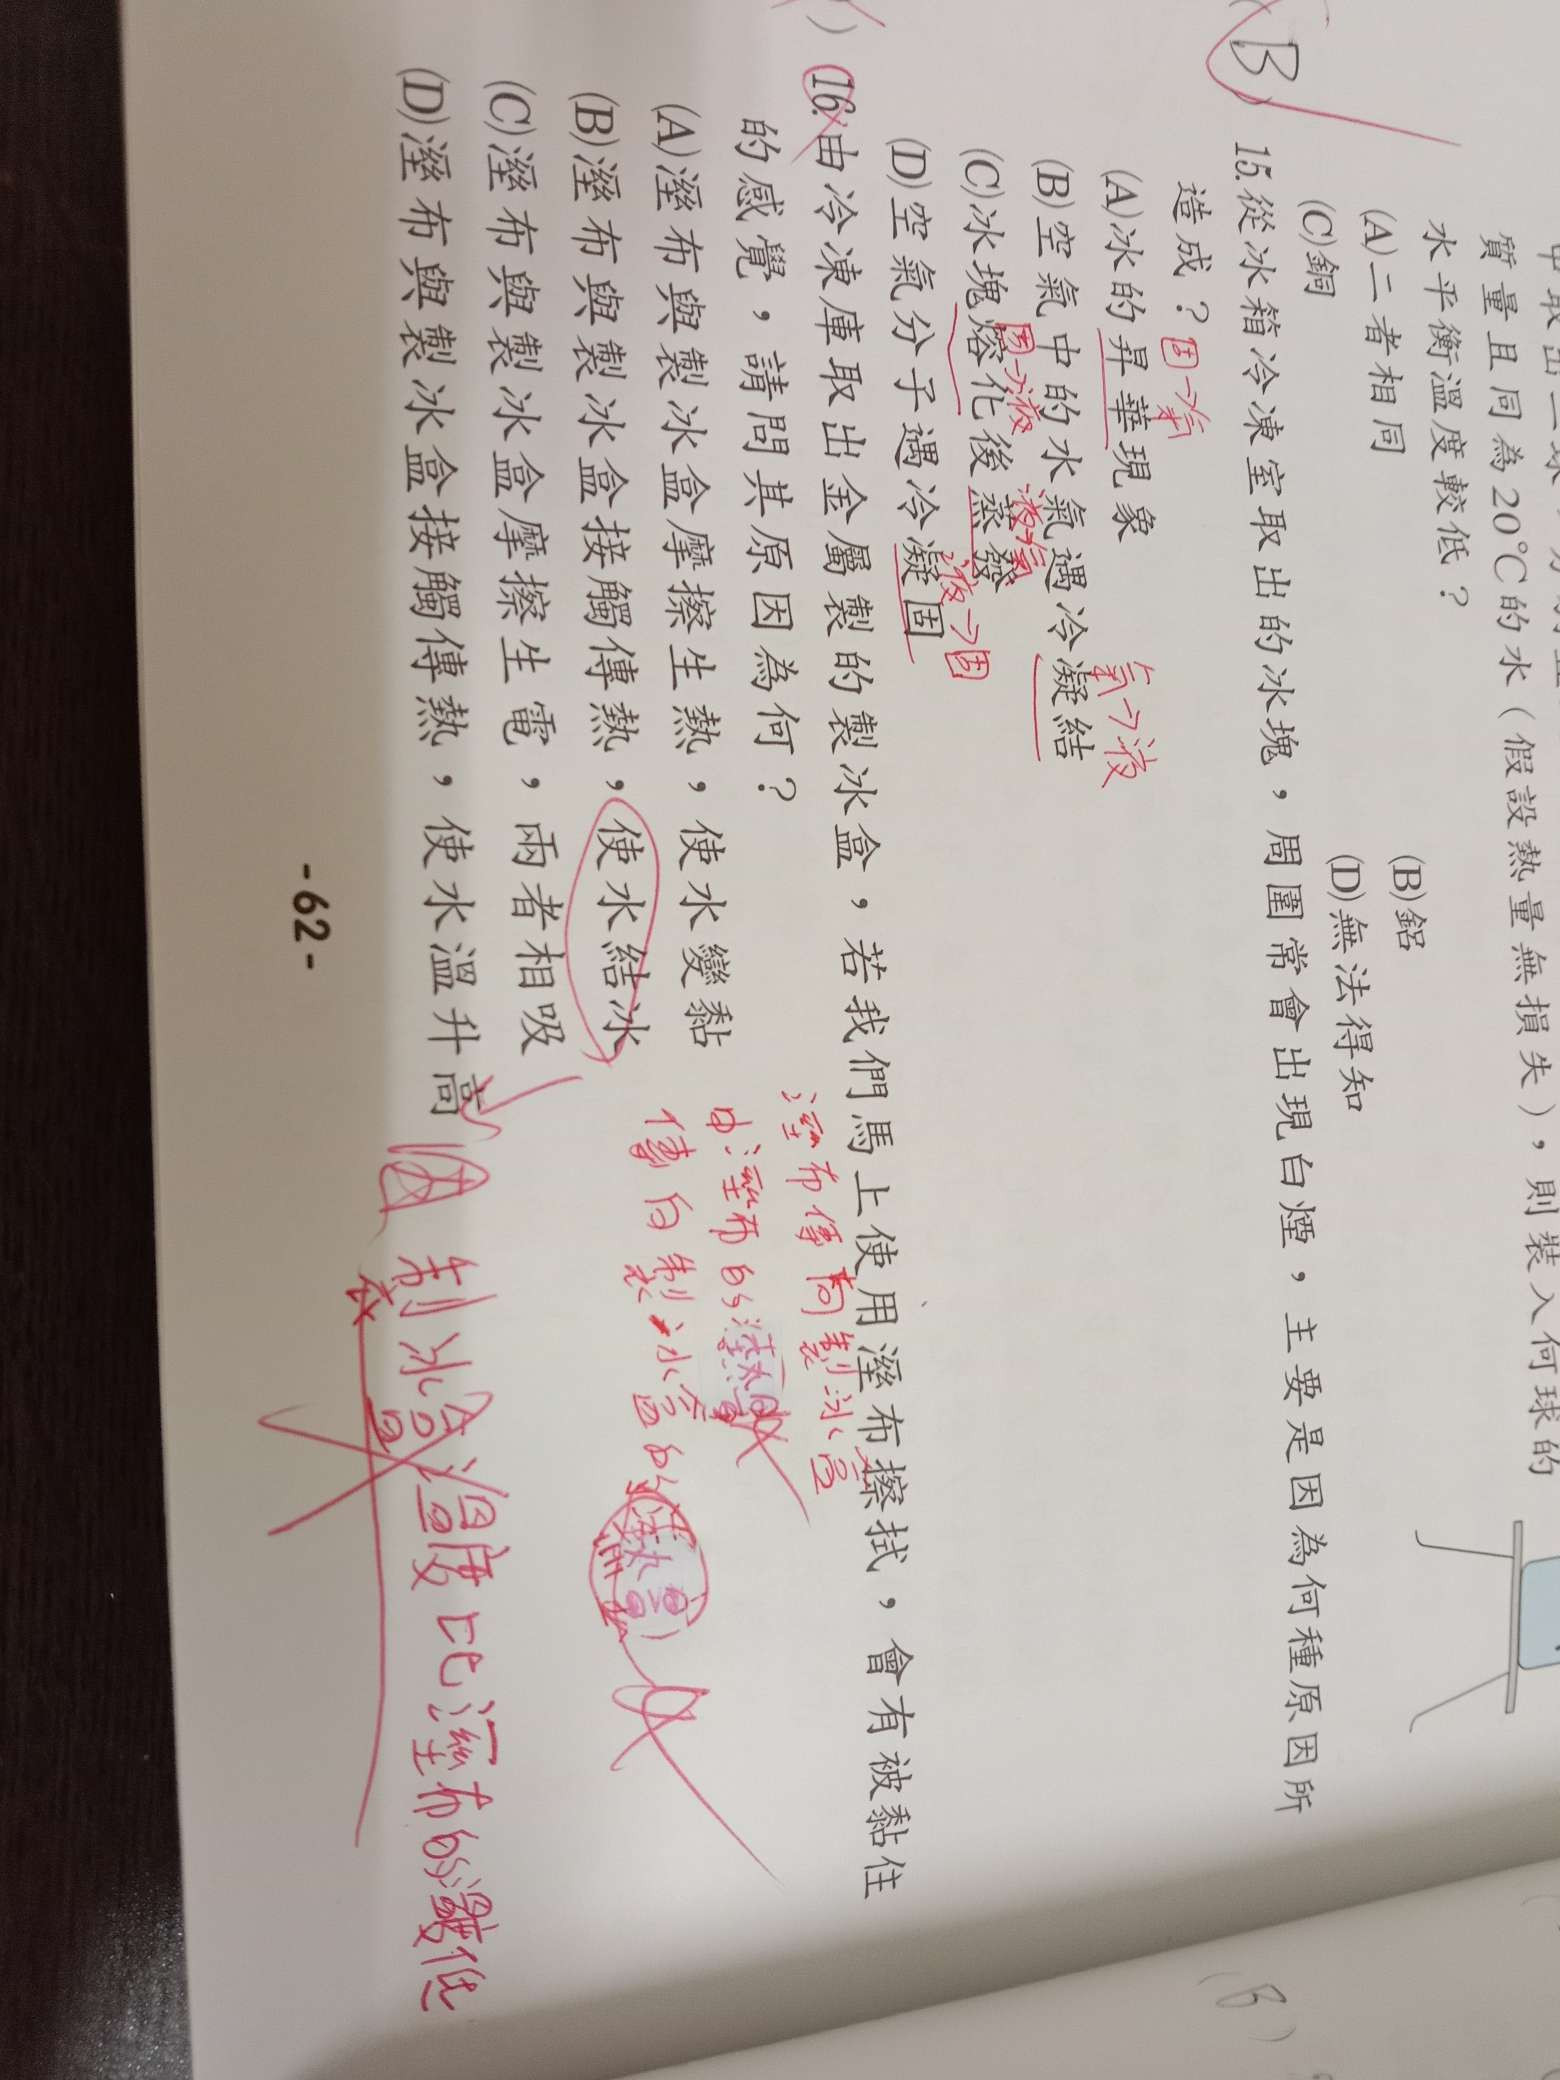 質量且同為20°C的水(假設熱量無損失),則裝入何球的
水平衡溫度較低?
(A)二者相同 (B)鋁
(C)銅 (D)無法得知
(B) 15.從冰箱冷凍室取出的冰塊,周圍常會出現白煙,主要是因為何種原因所
造成?
固→氣
(A)冰的昇華現象
氣→液
(B)空氣中的水氣遇冷凝結
固→液 液→氣
(C)冰塊熔化後蒸發
液→固
(D)空氣分子遇冷凝固
16.由冷凍庫取出金屬製的製冰盒,若我們馬上使用溼布擦拭,會有被黏住
的感覺,請問其原因為何?
(A)溼布與製冰盒摩擦生熱,使水變黏
(B)溼布與製冰盒接觸傳熱,使水結冰
(C)溼布與製冰盒摩擦生電,兩者相吸
(D)溼布與製冰盒接觸傳熱,使水溫升高
溼布傳向製冰盒
由溼布的熱
傳向製冰盒的
製冰盒溫度比溼布的還低
-62-
(B)